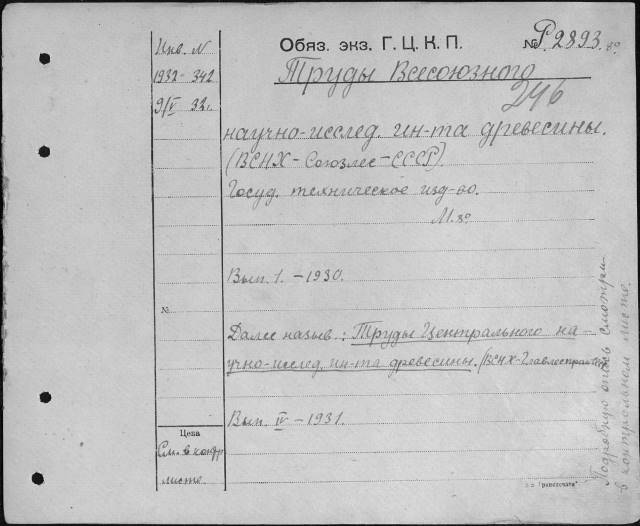 Инв. N
1932-342
9/V 32 г.
Обяз. экз. Г. Ц. К. П.
№ Р2893. 8°
Труды Всесоюзного
246
научно-исслед. ин-та древесины.
(ВСНХ-Союзлес-СССР).
Госуд. техническое изд-во.
М. 8°
Вып. 1. - 1930.
№
Далее назыв.: Труды Центрального на-
учно-исслед. ин-та древесины. (ВСНХ-
Вып. IV - 1931.
Цена
См. в контр.
листе
Подробную опись смотри
в контрольном листе.